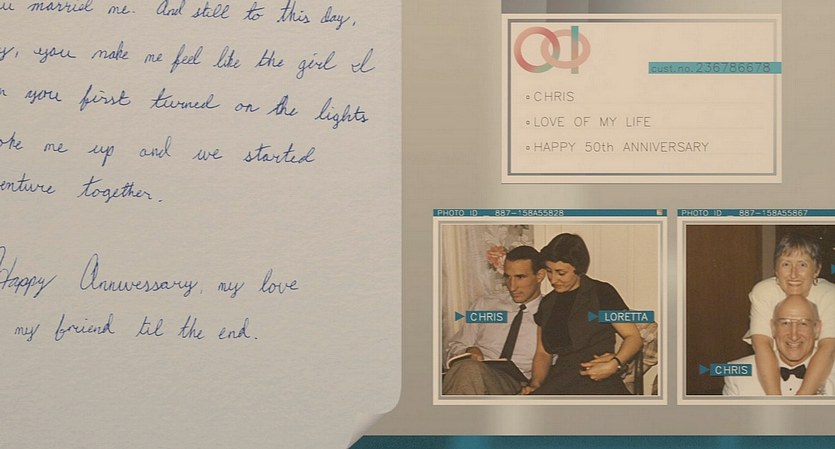 married me. And still to this day,
you make me feel like the girl I
you first turned on the lights
me up and we started
together.
Happy Anniverssary, my love
my friend til the end.
cust.no. 236786678
CHRIS
LOVE OF MY LIFE
HAPPY 50th ANNIVERSARY
PHOTO ID _ 887-158A55828
CHRIS
LORETTA
PHOTO ID _ 887-158A55867
CHRIS